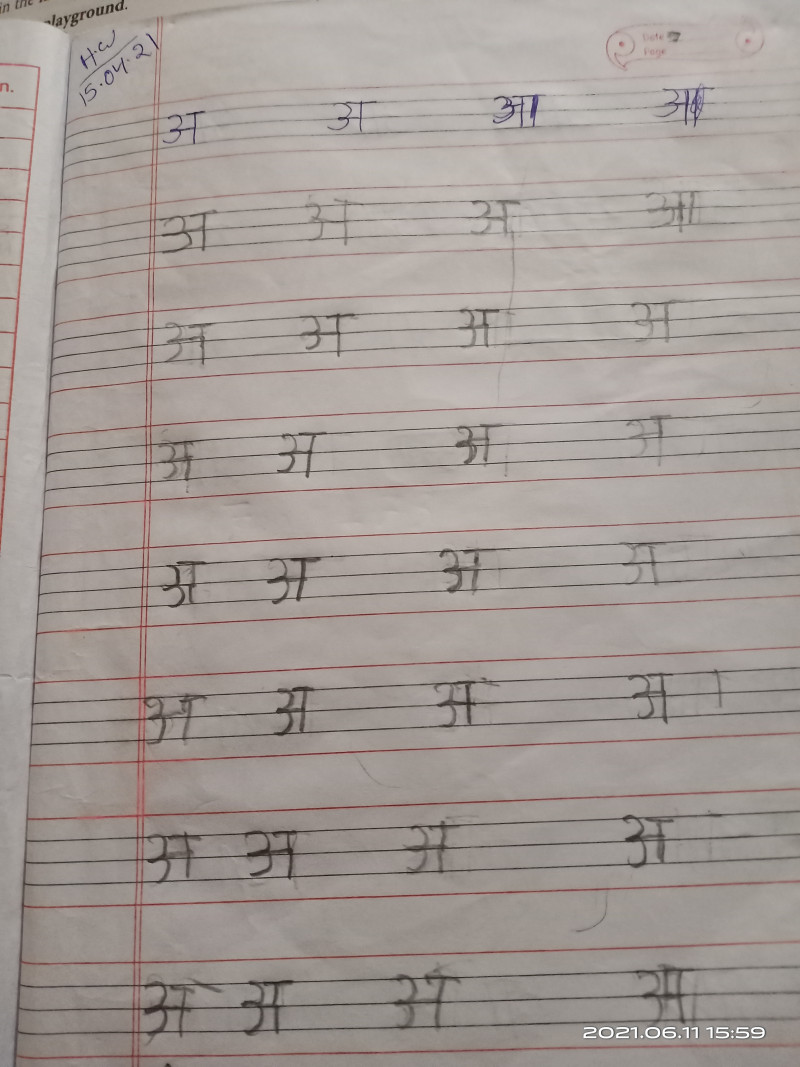 in the
playground.
H.W
15.04.21
Date
Page
n.
अ अ आ आ
अ अ अ आ
अ अ अ अ
अ अ अ अ
अ अ अ अ
अ अ अ अ
अ अ अ अ
अ अ अ अ
2021.06.11 15:59